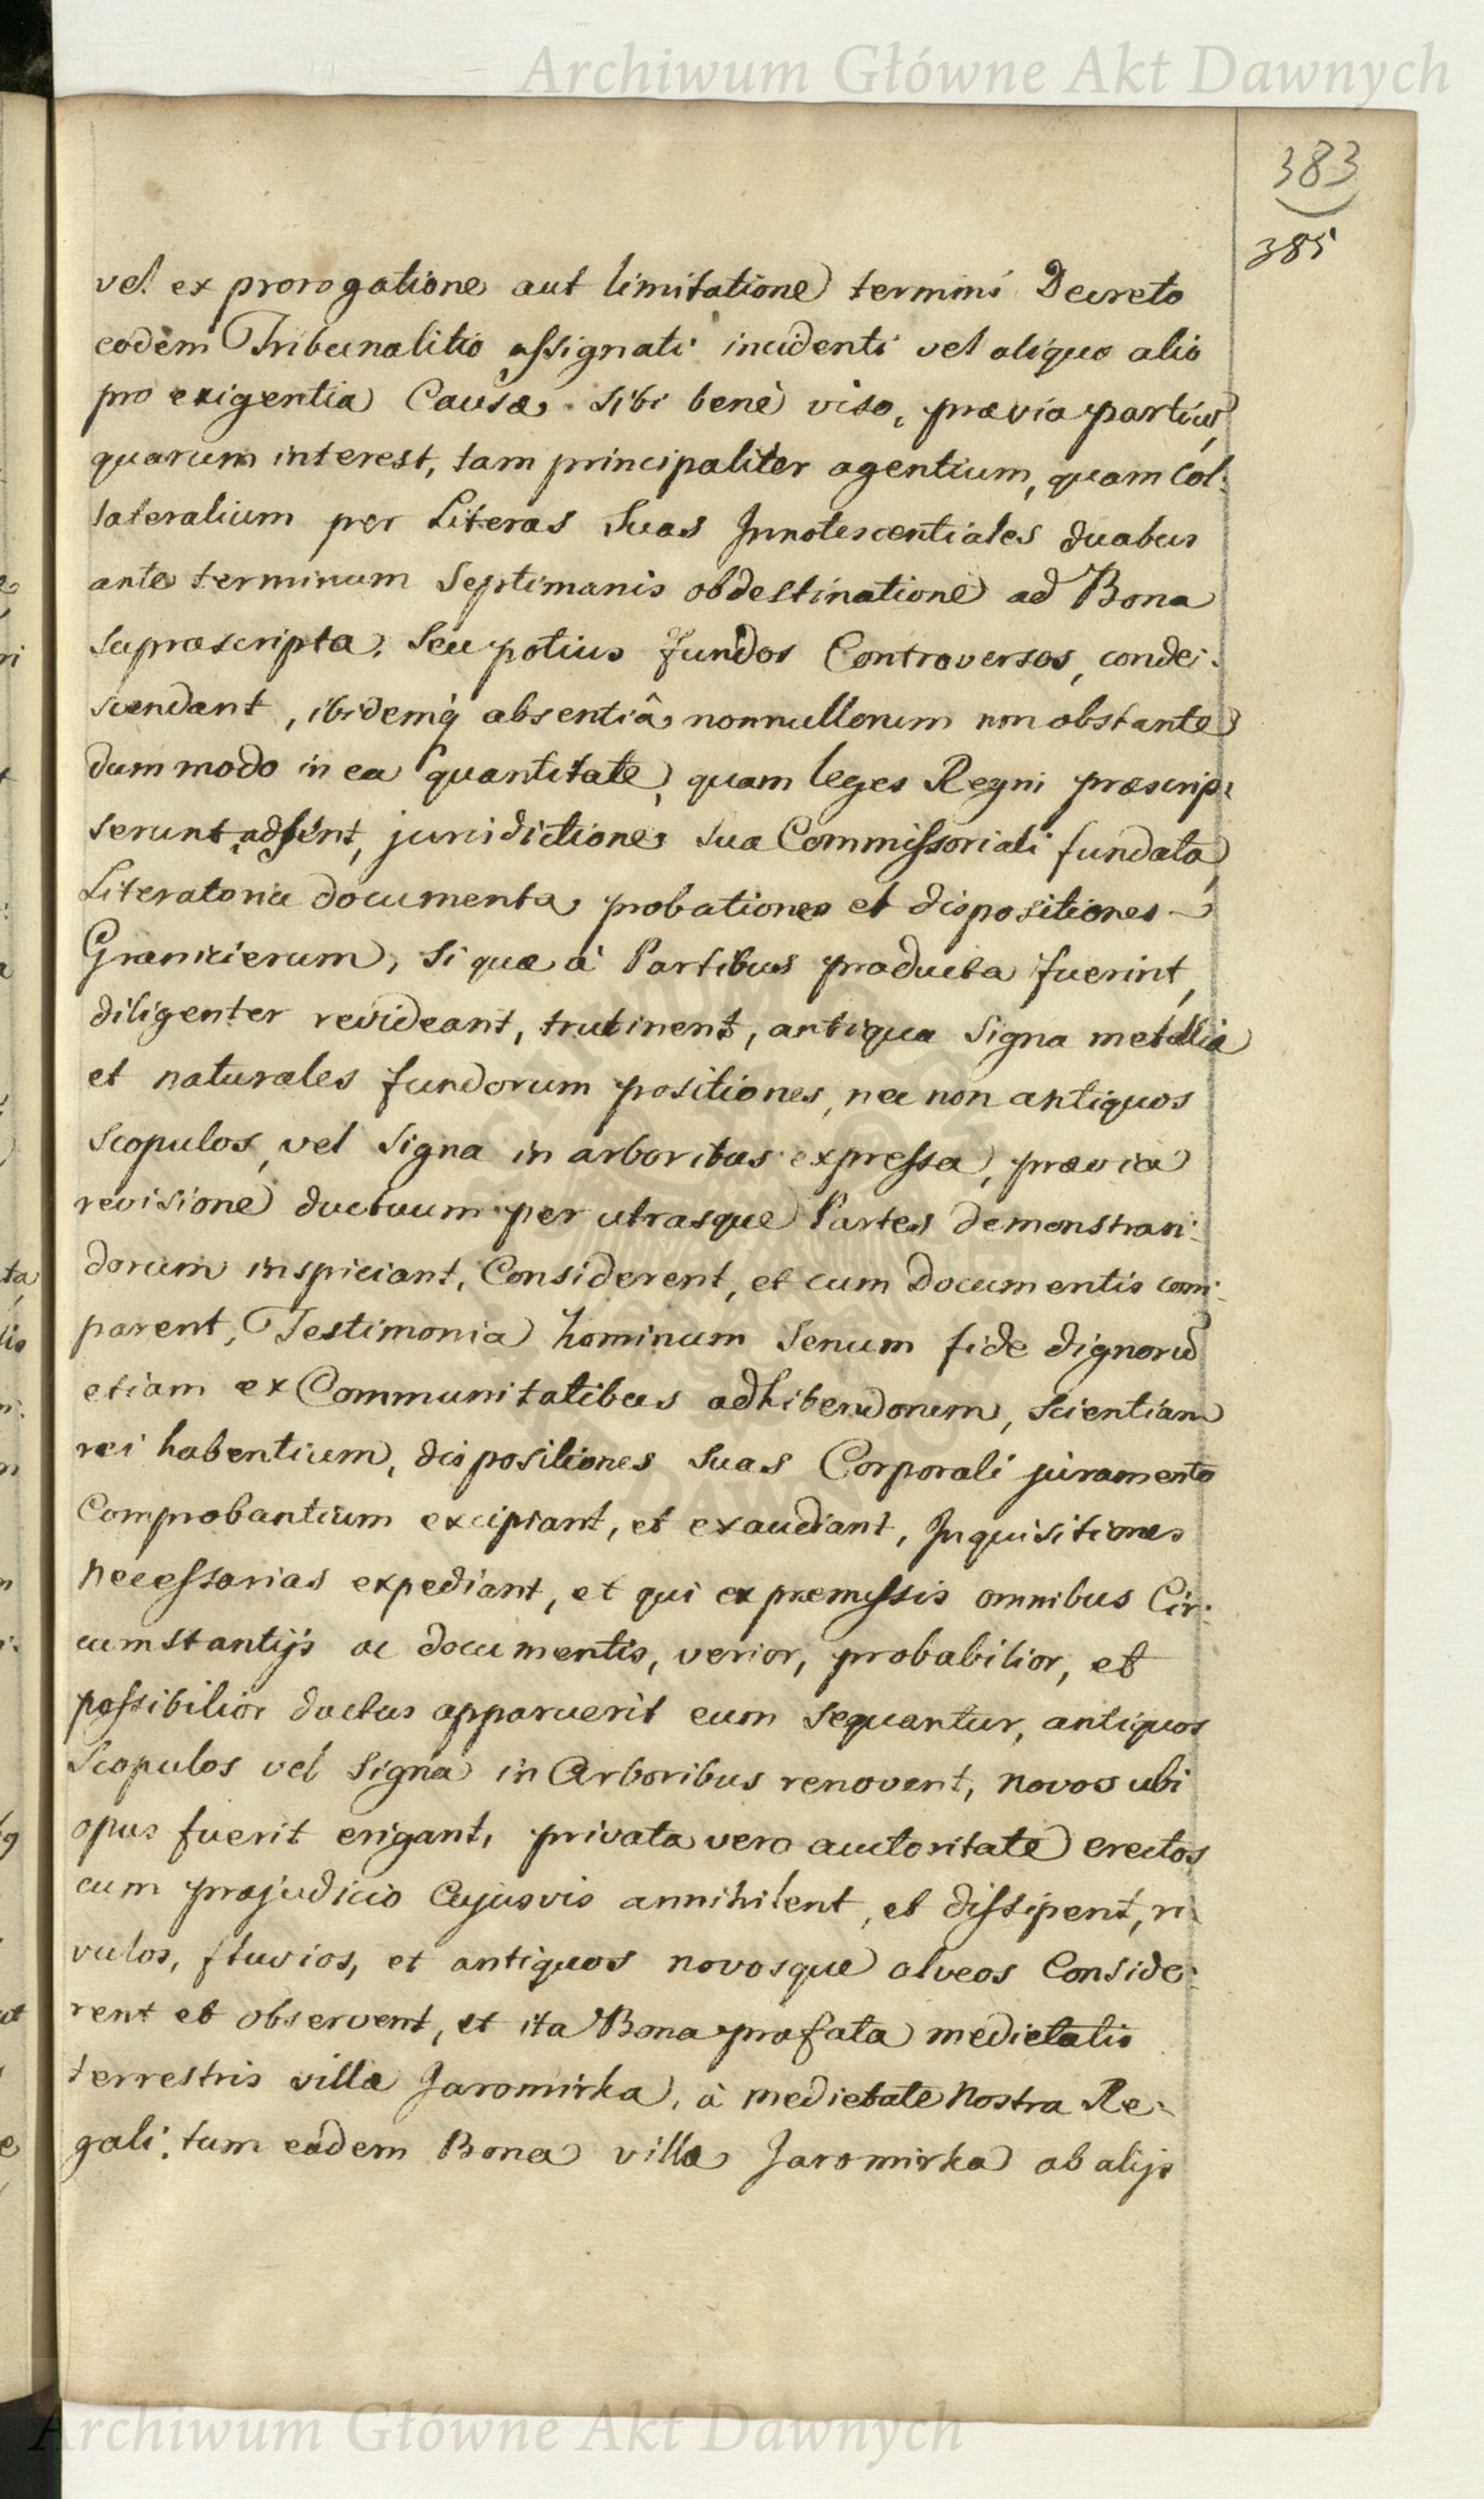 Archiwum Główne Akt Dawnych
383
385
vel ex prorogatione aut limitatione termini Decreto
eodem Tribunalitio assignati incidenti vel aliquo alio
pro exigentia Causæ sibi benè viso, prævia partiũ,
quarum interest, tam principaliter agentium, quam Col:
lateralium per Literas Suas Innotescentiales duabus
ante terminum Septimanis obdestinatione ad Bona
supræscripta, seu potius fundos Controversos, condes:
cendant, ibidemq̨ absentiâ nonnullorum non obstante
dummodo in ea quantitate, quam leges Regni præscrip:
serunt adsint, jurisdictione sua Commissoriali fundata,
Literatoria documenta, probationes et dispositiones
Granicierum, si quæ à Partibus producta fuerint,
diligenter revideant, trutinent, antiqua Signa metallia
et naturales fundorum positiones, nec non antiquos
Scopulos, vel Signa in arboribus expressa, prævia
revisione ductuum per utrasque Partes demonstran:
dorum inspiciant, Considerent, et cum Documentis com:
parent, Testimonia hominum Senum fide dignorũ
etiam ex Communitatibus adhibendorum, scientiam
rei habentium, dispositiones Suas Corporali juramento
Comprobantium excipiant, et exaudiant, Inquisitiones
necessarias expediant, et qui ex præmissis omnibus Cir:
cumstantijs ac documentis, verior, probabilior, et
possibilior ductus apparuerit eum sequantur, antiquos
Scopulos vel Signa in Arboribus renovent, novos ubi
opus fuerit erigant, privata vero auctoritate erectos
cum præjudicio Cujusvis annihilent, et dissipent, ri:
vulos, fluvios, et antiquos novosque alveos Conside:
rent et observent, et ita Bona præfata medietatis
terrestris villæ Jaromirka, à medietate Nostra Re:
gali, tum eadem Bona villæ Jaromirka ab alijs
Archiwum Główne Akt Dawnych